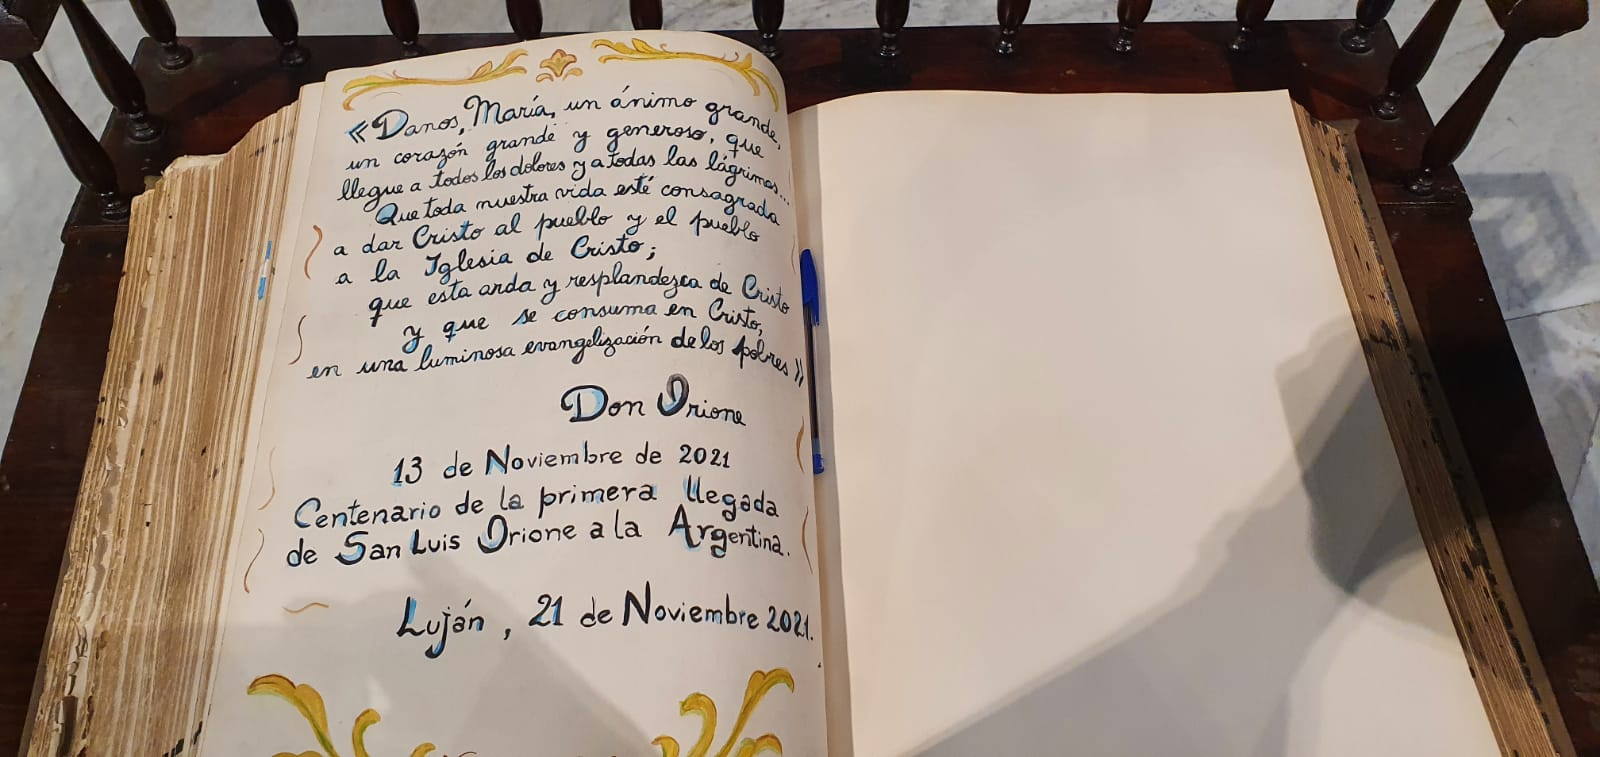 «Danos, María, un ánimo grande,
un corazón grande y generoso, que
llegue a todos los dolores y a todas las lágrimas...
Que toda nuestra vida esté consagrada
a dar Cristo al pueblo y el pueblo
a la Iglesia de Cristo;
que esta arda y resplandezca de Cristo
y que se consuma en Cristo,
en una luminosa evangelización de los pobres»
Don Orione
13 de Noviembre de 2021
Centenario de la primera llegada
de San Luis Orione a la Argentina.
Luján, 21 de Noviembre 2021.